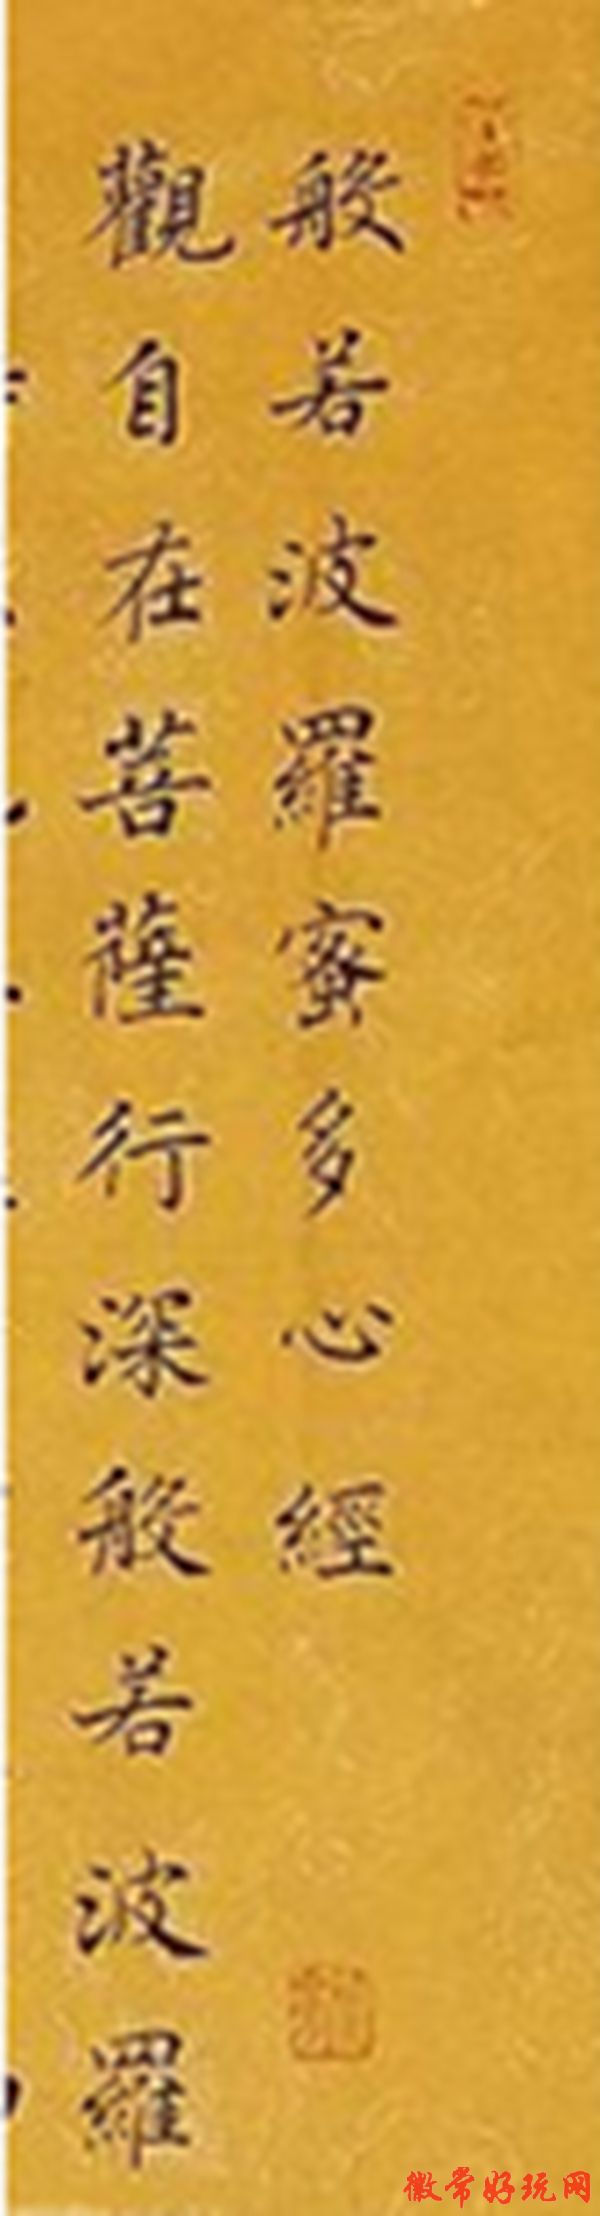 般若波羅蜜多心經
觀自在菩薩行深般若波羅
徽常好玩网